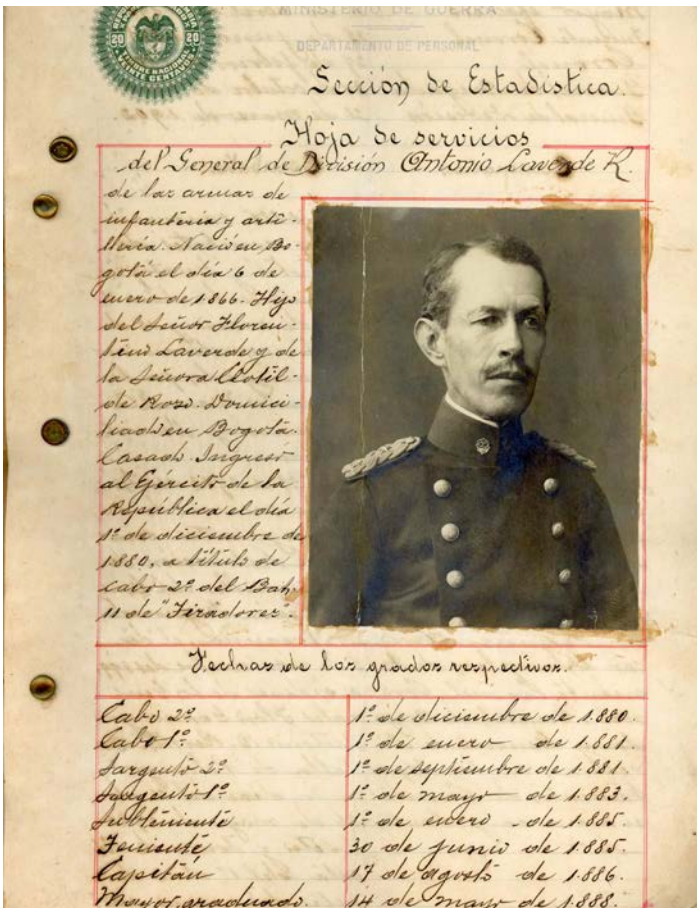 MINISTERIO DE GUERRA
DEPARTAMENTO DE PERSONAL
20 20
TIMBRE NACIONAL
VEINTE CENTAVOS
Sección de Estadística.
Hoja de servicios
del General de División Antonio Laverde R.
de las armas de
infantería y arti-
llería. Nació en Bo-
gotá el día 6 de
enero de 1866. Hijo
del Señor Floren-
tino Laverde y de
la Señora Clotil-
de Rozo. Domici-
liado en Bogotá.
Casado. Ingresó
al Ejército de la
República el día
1º de diciembre de
1880, a título de
cabo 2º del Bat.
11 de "Tiradores".
Fechas de los grados respectivos.
Cabo 2º 1º de diciembre de 1.880.
Cabo 1º 1º de enero de 1.881.
Sargento 2º 1º de septiembre de 1.881.
Sargento 1º 1º de mayo de 1.883.
Subteniente 1º de enero de 1.885.
Teniente 30 de junio de 1.885.
Capitán 17 de agosto de 1.886.
Mayor graduado. 14 de mayo de 1.888.